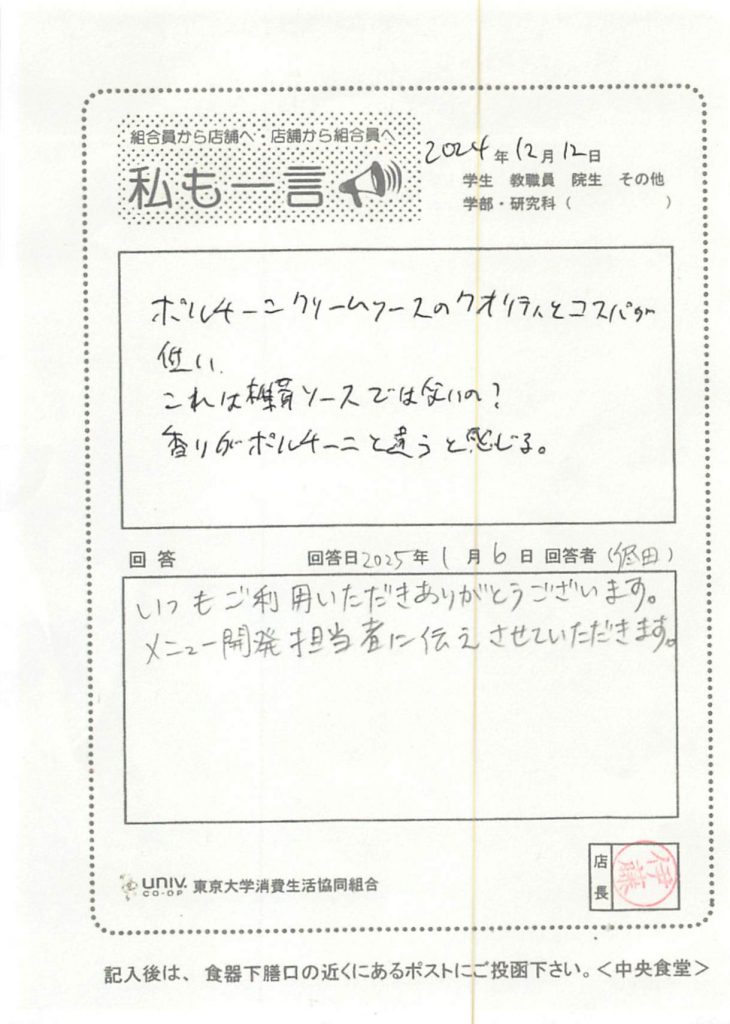 組合員から店舗へ・店舗から組合員へ
私も一言
2024年12月12日
学生 教職員 院生 その他
学部・研究科( )
ポルチーニクリームソースのクオリティとコスパが
低い
これは ソースではないの?
香りがポルチーニと違うと感じる。
回答 回答日2025年1月6日 回答者( 田)
いつもご利用いただきありがとうございます。
メニュー開発担当者に伝えさせていただきます。
店長
伊藤
UNIV. CO-OP 東京大学消費生活協同組合
記入後は、食器下膳口の近くにあるポストにご投函下さい。<中央食堂>